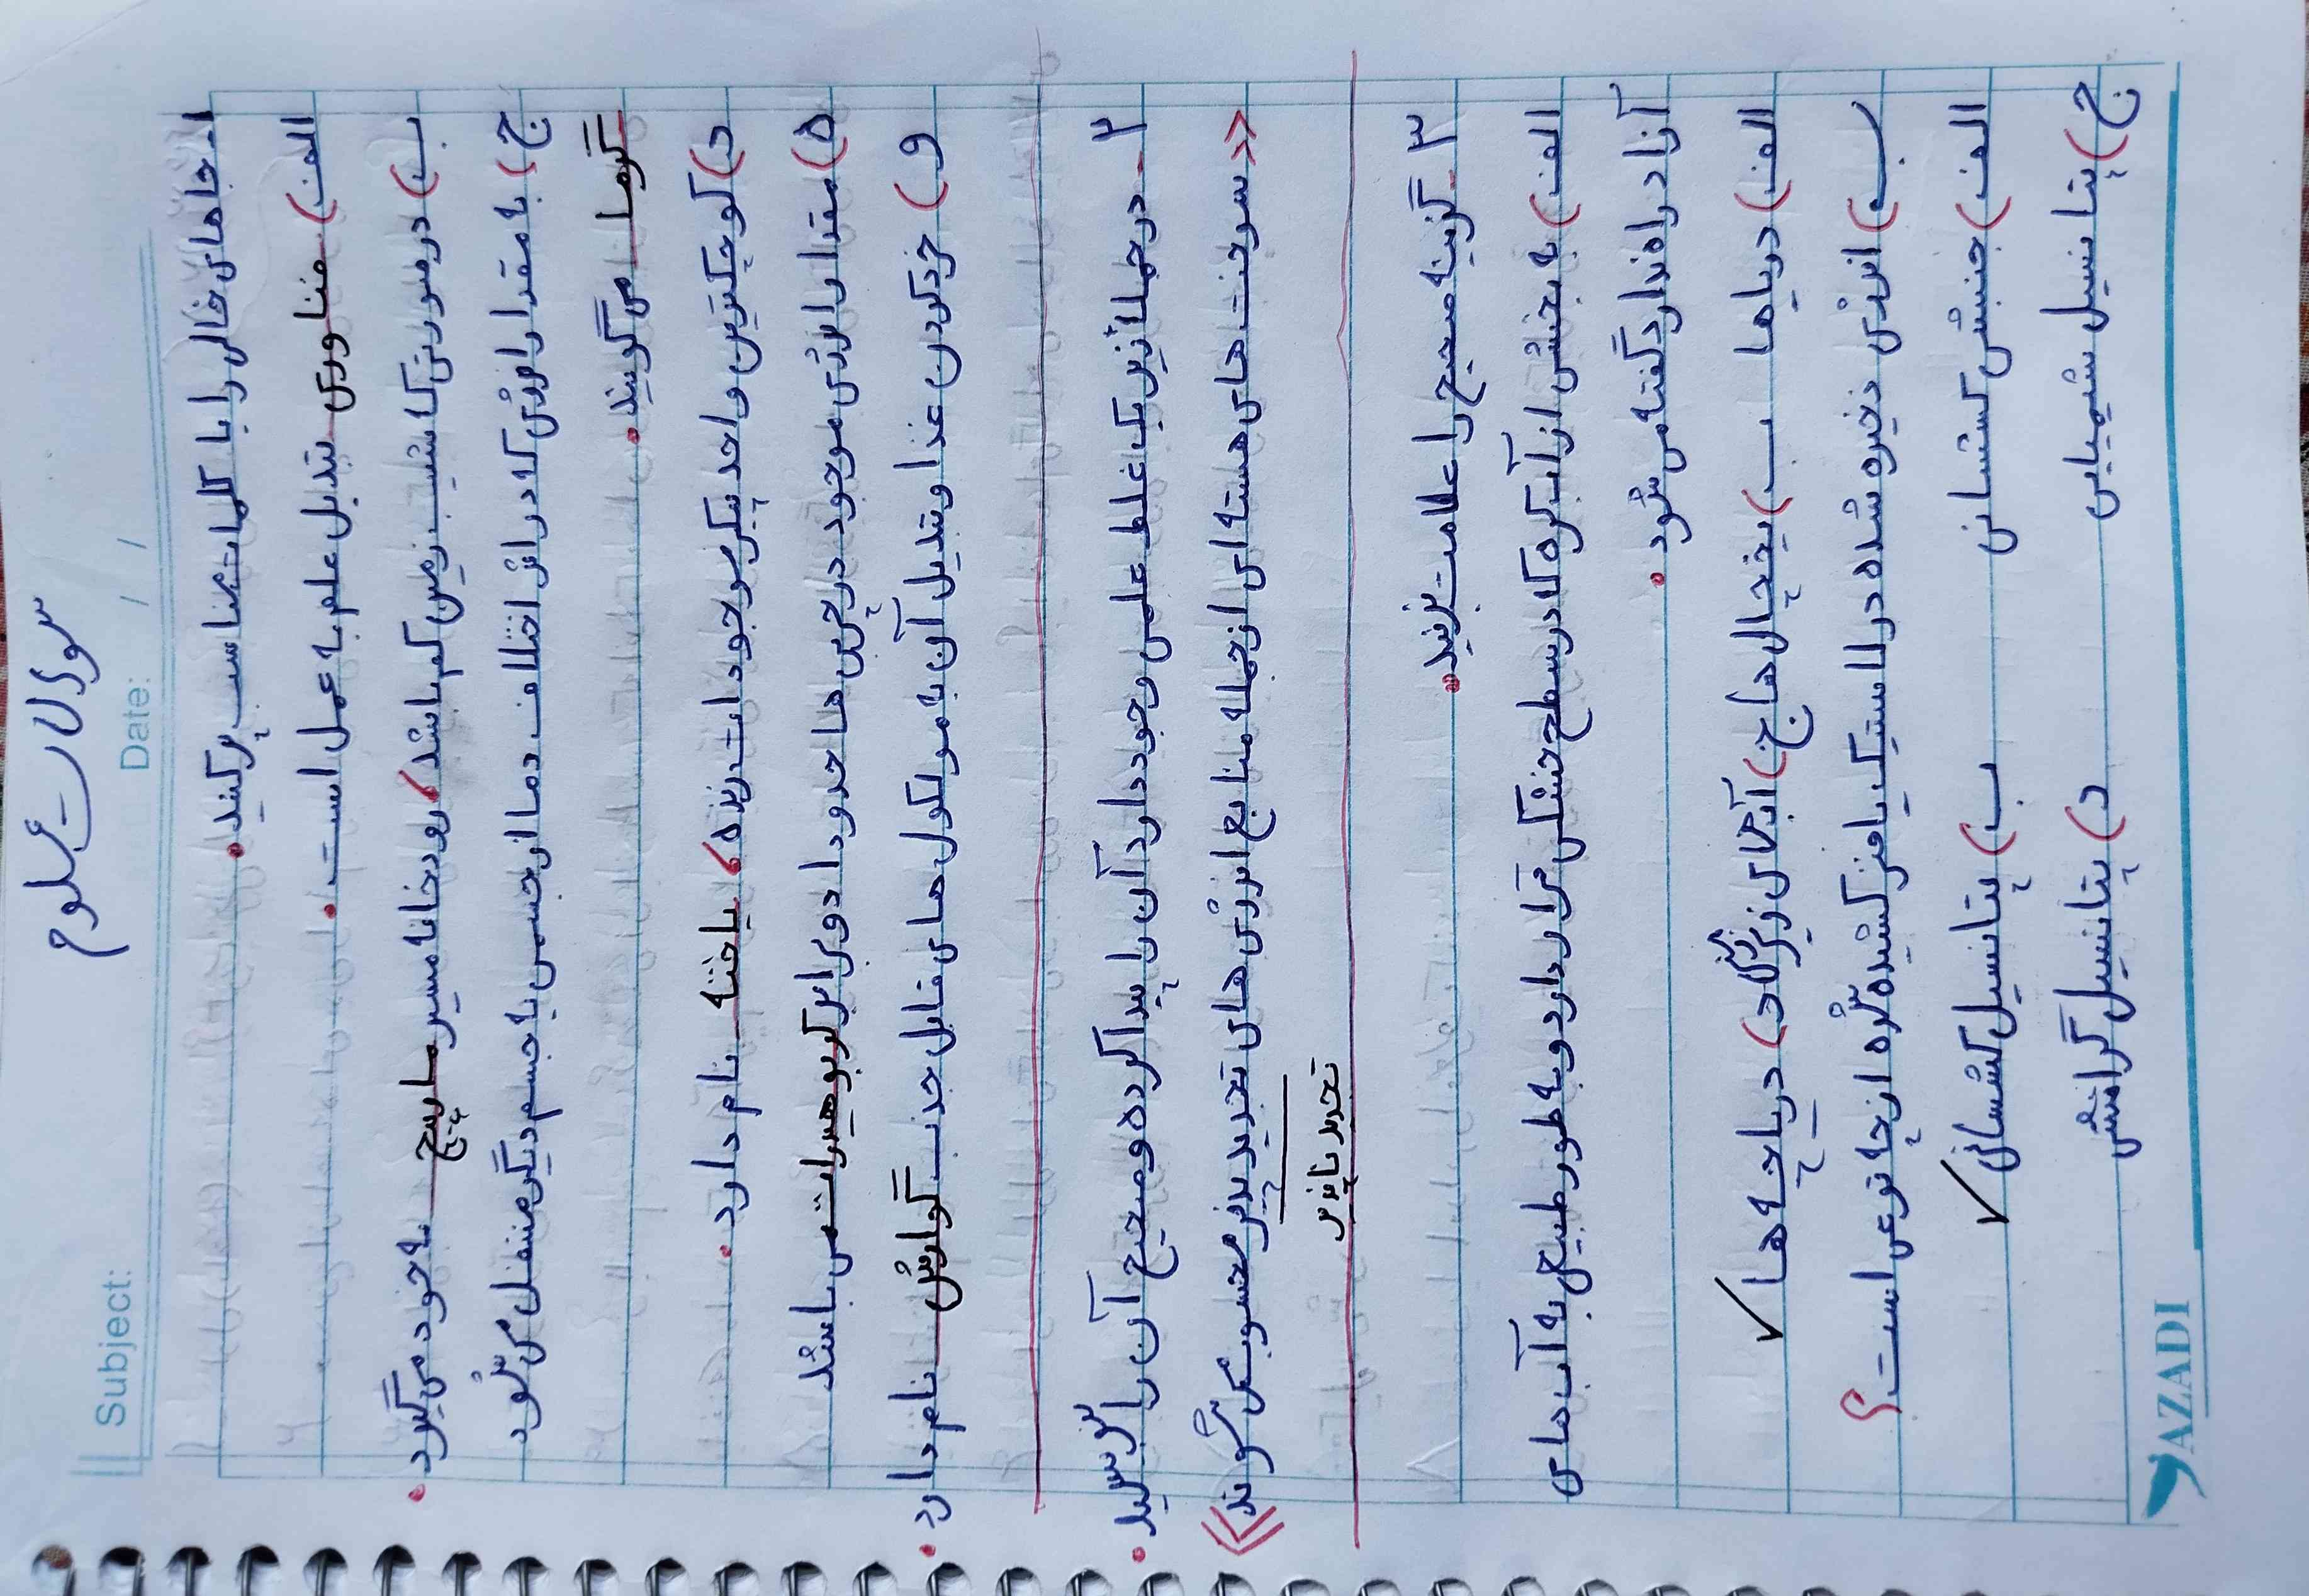 سوالات علوم
Subject:
Date: / /
۱- جاهای خالی را با کلمات مناسب پر کنید.
الف) فناوری تبدیل علم به عمل است.
ب) در صورتی که شیب زمین کم باشد، رودخانه مسیر مارپیچ به خود می گیرد.
ج) به مقدار انرژی که در اثر اختلاف دما از جسمی به جسم دیگر منتقل می شود
گرما می گویند.
د) کوچکترین واحد پیکر موجودات زنده، یاخته نام دارد.
ه) مقدار انرژی موجود در چربی ها حدودا دو برابر کربوهیدرات می باشد
و) خرد کردن غذا و تبدیل آن به مولکول های قابل جذب گوارش نام دارد.
۲- در جمله زیر یک غلط علمی وجود دارد آن را پیدا کرده و صحیح آن را بنویسید.
«سوخت های هسته ای از جمله منابع انرژی های تجدید پذیر محسوب می شوند»
تجدید ناپذیر
۳- گزینه صحیح را علامت بزنید.
الف) به بخشی از آب کره که در سطح خشکی قرار دارد و به طور طبیعی به آب های
آزاد راه ندارد گفته می شود.
الف) دریاها ب) یخچال ها ج) آبهای زیرزمینی د) دریاچه ها ✓
ب) انرژی ذخیره شده در لاستیک یا فنر کشیده شده از چه نوعی است؟
الف) جنبشی کشسانی ب) پتانسیل کشسانی ✓
ج) پتانسیل شیمیایی د) پتانسیل گرانشی
AZADI